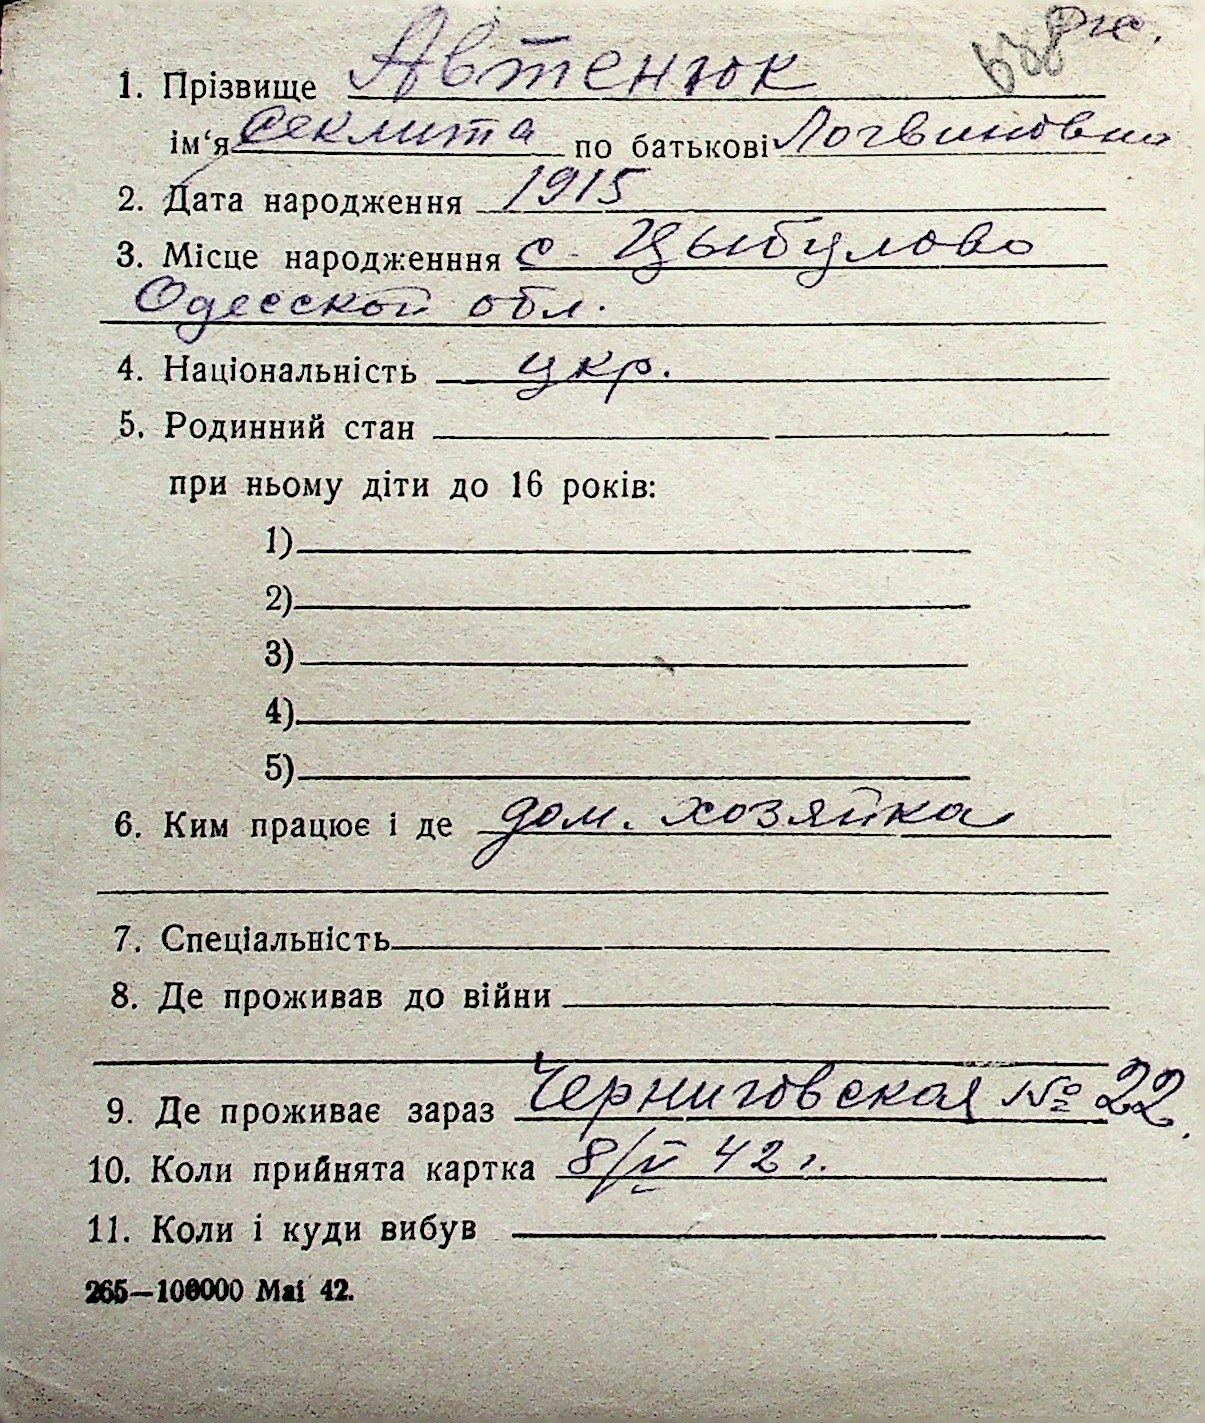 1. Прізвище Автенюк
ім‘я Секлита по батькові Логвиновна
2. Дата народження 1915
3. Місце народженння с. Цыбулово
Одесской обл.
4. Національність укр.
5. Родинний стан
при ньому діти до 16 років:
1)
2)
3)
4)
5)
6. Ким працює і де дом. хозяйка
7. Спеціальність
8. Де проживав до війни
9. Де проживає зараз Черниговская № 22.
10. Коли прийнята картка 8/V 42 г.
11. Коли і куди вибув
265—100000 Mai 42.